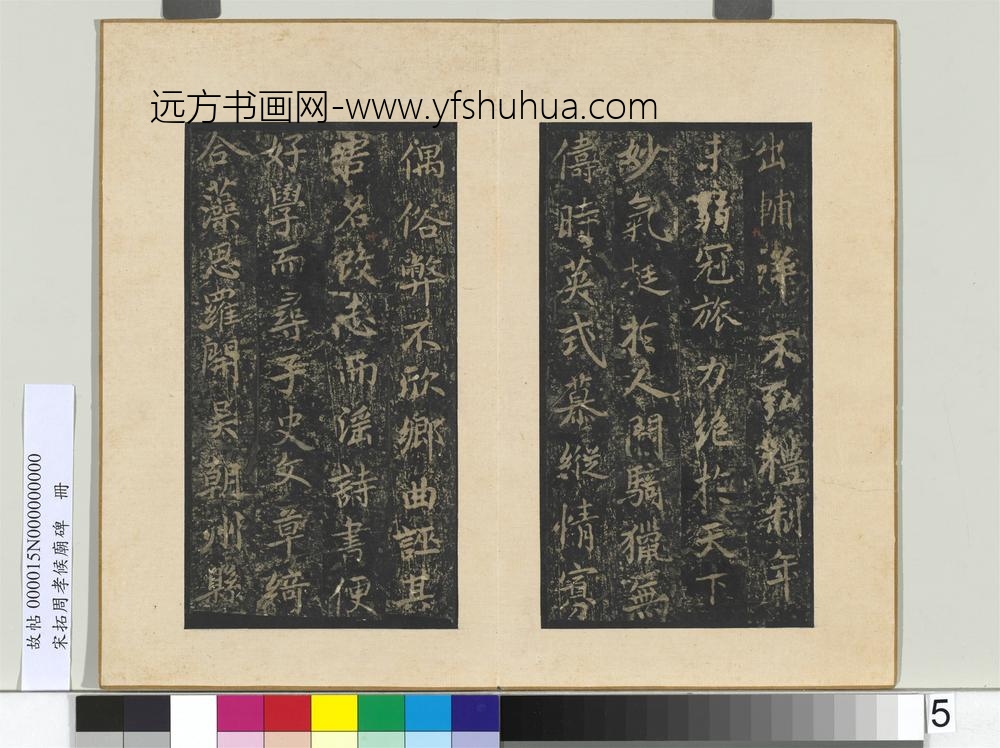 远方书画网-www.yfshuhua.com
出 不弘禮制年
未弱冠旅力絶於天下
妙氣挺於人間騎獵無
儔時英式慕縱情寡
偶俗弊不欣鄉曲誣其
名改志而淫詩書便
好學而尋子史文章綺
合藻思羅開吳朝州縣
故帖 000015N000000000
宋拓周孝候廟碑 冊
5